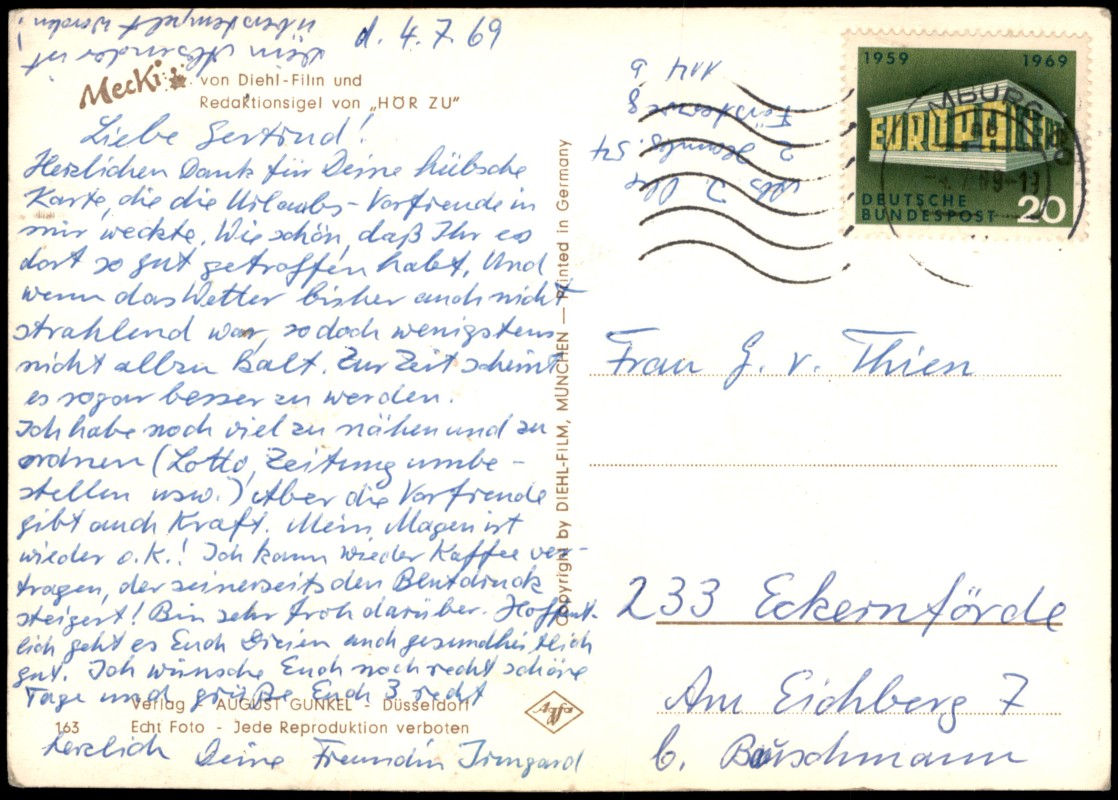 d. 4.7.69
Dein Absender ist
überstempelt worden!
Mecki von Diehl-Film und
Redaktionsigel von „HÖR ZU"
Liebe Gertrud!
Herzlichen Dank für Deine hübsche
Karte, die die Urlaubs-Vorfreude in
mir weckte. Wie schön, daß Ihr es
dort so gut getroffen habt. Und
wenn das Wetter bisher auch nicht
strahlend war, so doch wenigstens
nicht allzu kalt. Zur Zeit scheint
es sogar besser zu werden.
Ich habe noch viel zu nähen und zu
ordnen (Lotto, Zeitung umbe-
stellen usw.) Aber die Vorfreude
gibt auch Kraft. Mein Magen ist
wieder o.K.! Ich kann wieder Kaffee ver-
tragen, der seinerseits den Blutdruck
steigert! Bin sehr froh darüber. Hoffent-
lich geht es Euch Dreien auch gesundheitlich
gut. Ich wünsche Euch noch recht schöne
Tage und grüße Euch 3 recht
herzlich Deine Freundin Irmgard
Verlag - AUGUST GUNKEL - Düsseldorf
163 Echt Foto - Jede Reproduktion verboten
Agfa
Copyright by DIEHL-FILM, MÜNCHEN — Printed in Germany
Abs. J.
2 Hambg. 54
1959 1969
EUROPA CEPT
DEUTSCHE
BUNDESPOST 20
MBURG
Frau G. v. Thien
233 Eckernförde
Am Eichberg 7
b. Buschmann